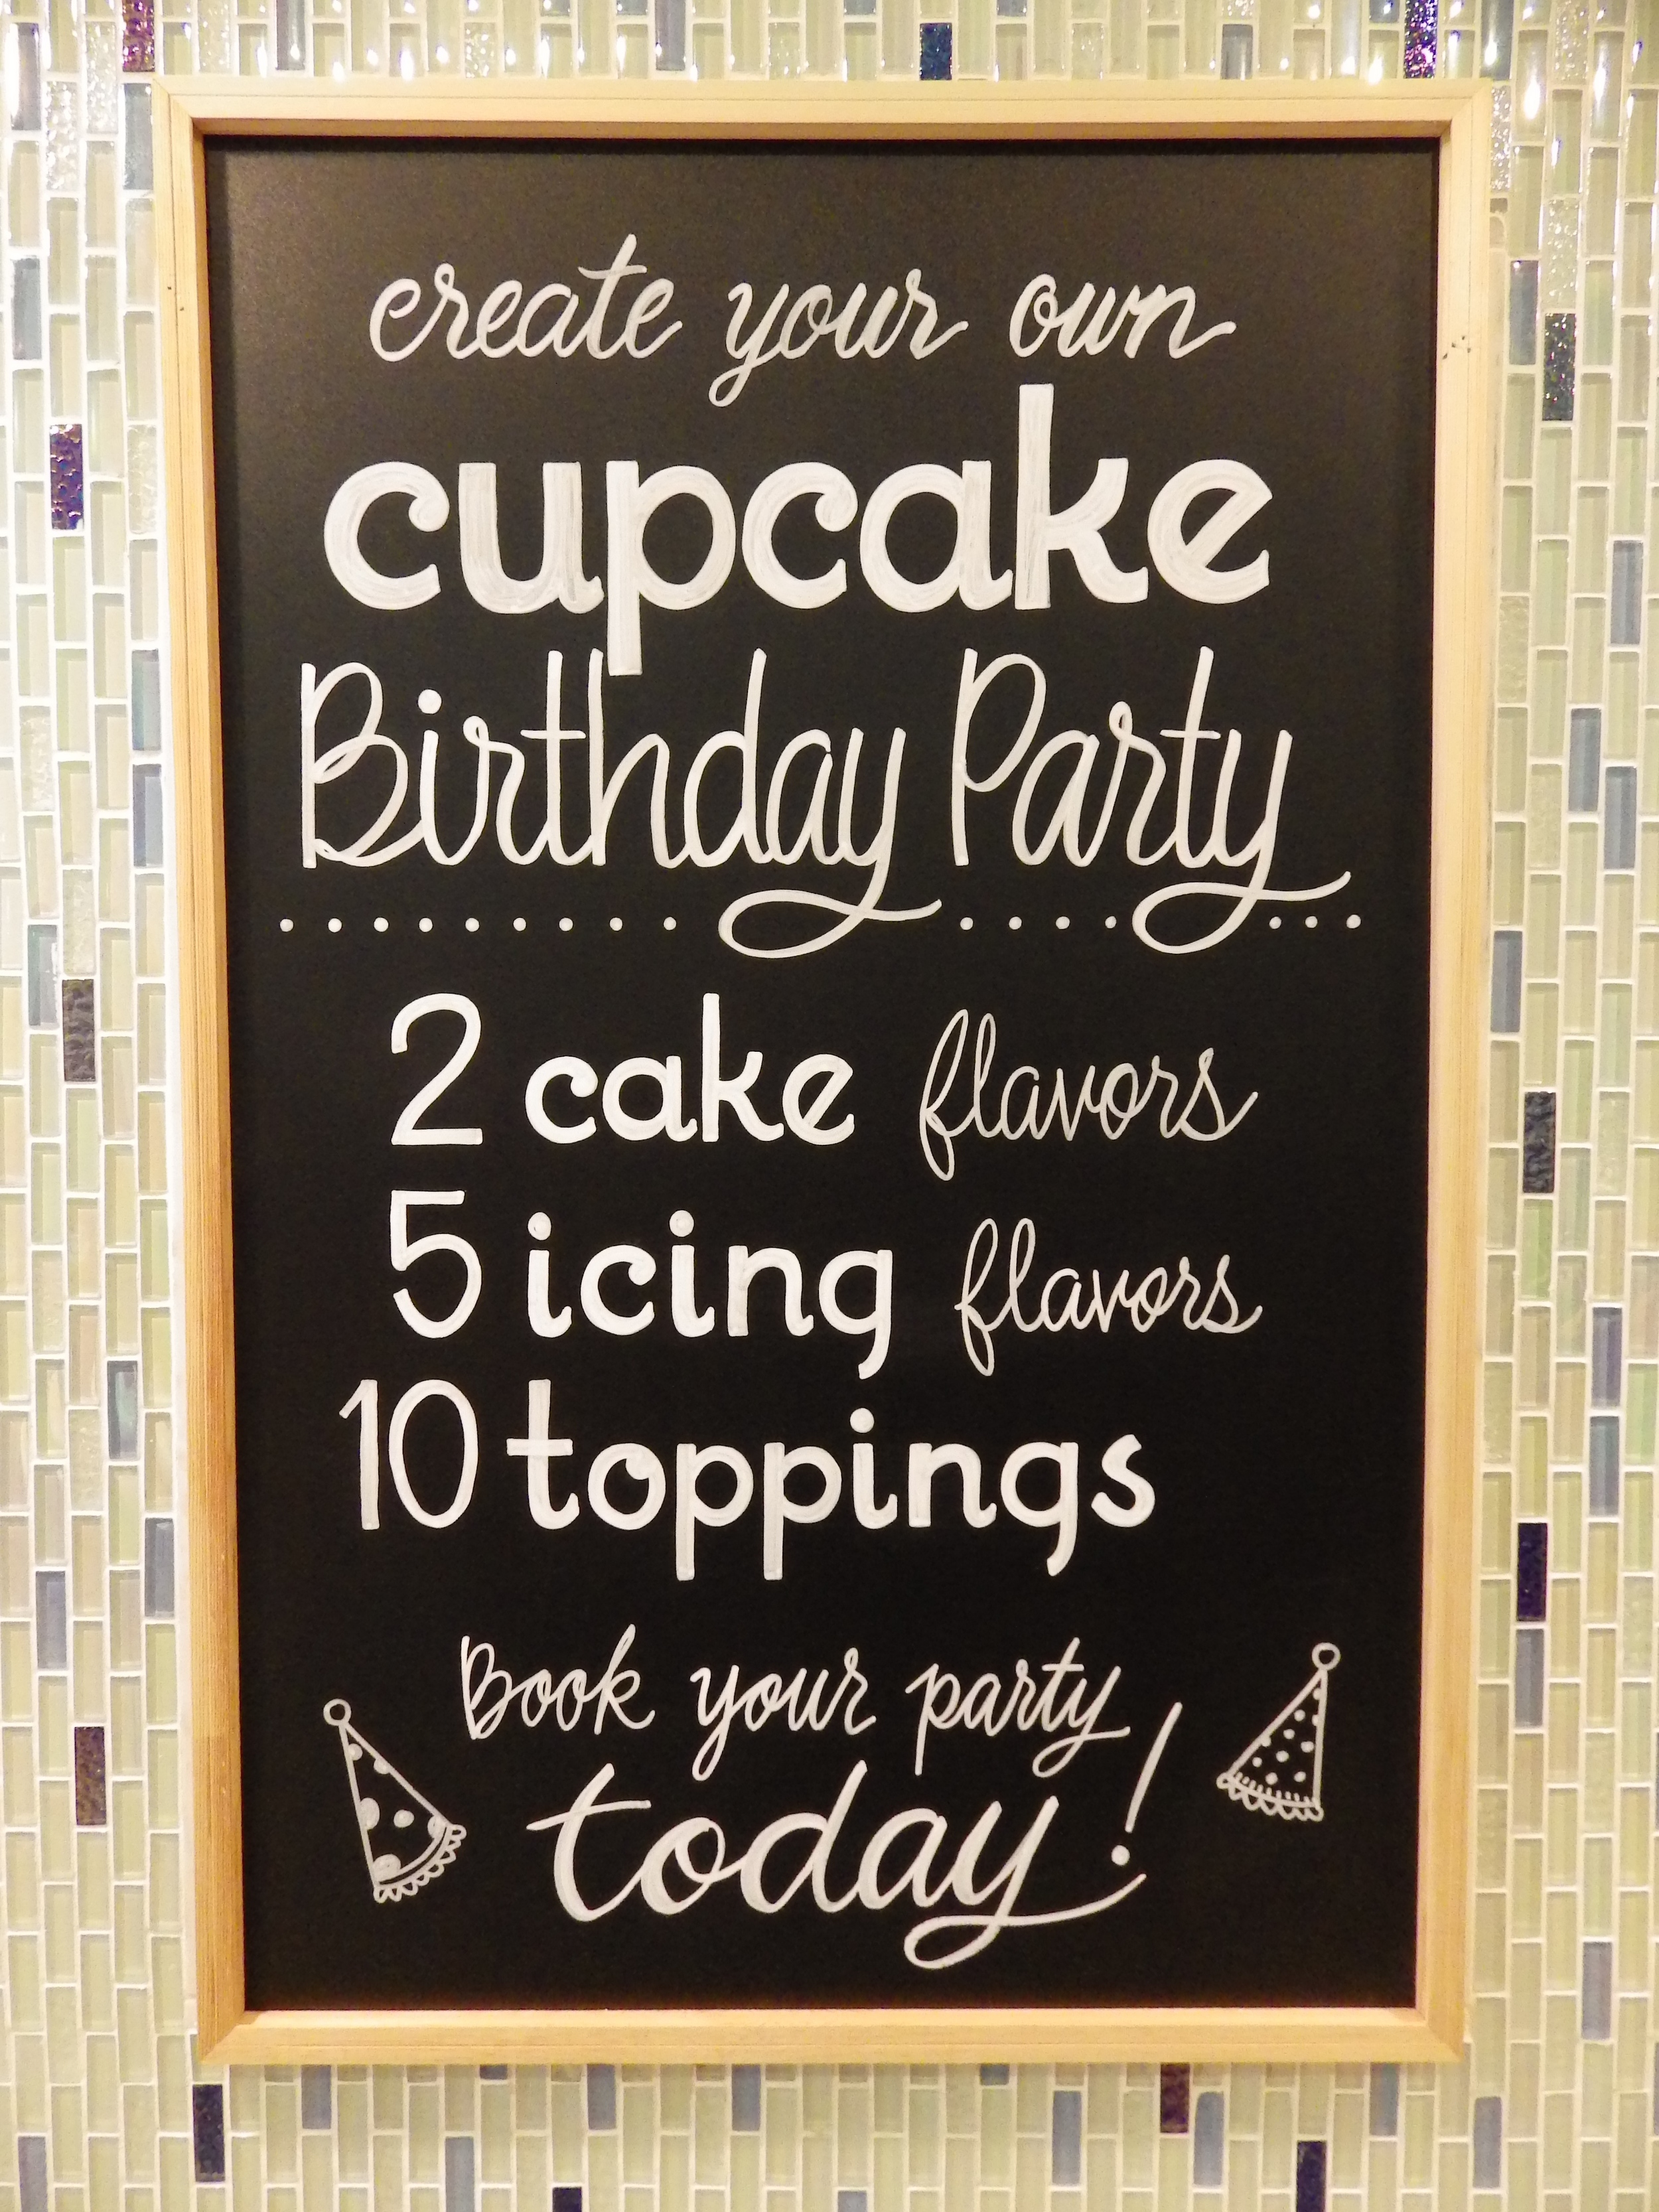 create your own
cupcake
Birthday Party
2 cake flavors
5 icing flavors
10 toppings
Book your party
today!